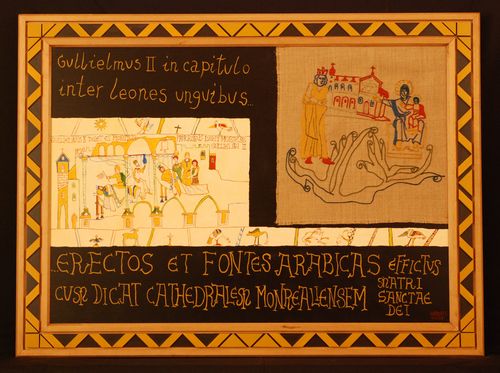 Gullielmus II in capitulo
inter leones unguibus...
...ERECTOS ET FONTES ARABICAS EFFICTUS
CUM DICAT CATHEDRALEM MONREALENSEM MATRI
SANCTAE
DEI